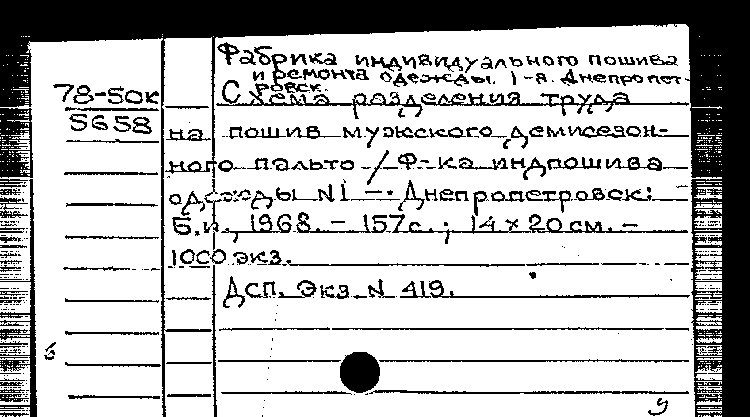 Фабрика индивидуального пошива
и ремонта одежды. 1-я. Днепропет-
ровск.
78-50к
Схема разделения труда
5658
на пошив мужского демисезон-
ного пальто / Ф-ка индпошива
одежды N1 —. Днепропетровск:
Б.и., 1968. - 157с.; 14×20см. -
1000 экз.
Дсп. Экз. N 419.
б
у